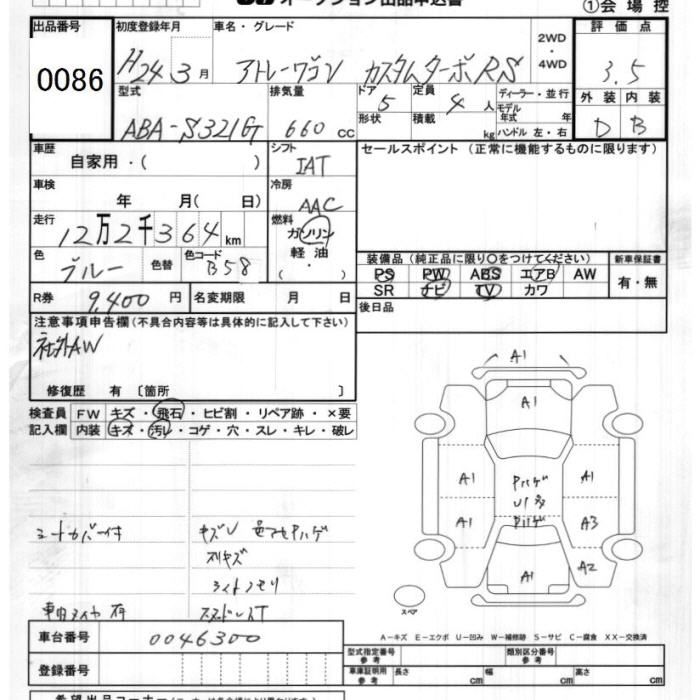 オークション出品申込書
①会場控
出品番号
0086
初度登録年月
H24 3月
車名・グレード
アトレーワゴン カスタムターボRS
2WD・4WD
評価点
3.5
型式
ABA-S321G
排気量
660 cc
ドア 5
形状
定員 4人
積載 kg
ディーラー・並行
モデル年式 年
ハンドル 左・右
外装 内装
D B
車歴
自家用・( )
シフト
IAT
セールスポイント (正常に機能するものに限ります)
車検
年 月( 日)
冷房
AAC
走行
12万2千364km
燃料
ガソリン
軽油
・( )
色
ブルー
色替
色コード
B58
装備品 (純正品に限り○をつけてください)
新車保証書
PS PW ABS エアB AW
SR ナビ TV カワ
有・無
R券 9,400円
名変期限 月 日
後日品
注意事項申告欄(不具合内容等は具体的に記入して下さい)
社外AW
修復歴 有 〔箇所 〕
検査員記入欄
FW キズ・飛石・ヒビ割・リペア跡・×要
内装 キズ・汚レ・コゲ・穴・スレ・キレ・破レ
シートカバー付
キズU
スリキズ
ライトクモリ
車内タイヤ有
スタッドレスT
A1
A1
A1
A1
Pハゲ
U1多
Pハゲ
A1
A3
A2
A1
スペア
A-キズ E-エクボ U-凹み W-補修跡 S-サビ C-腐食 XX-交換済
車台番号
0046300
登録番号
型式指定番号 参考
類別区分番号 参考
車庫証明用 参考
長さ cm
幅 cm
高さ cm